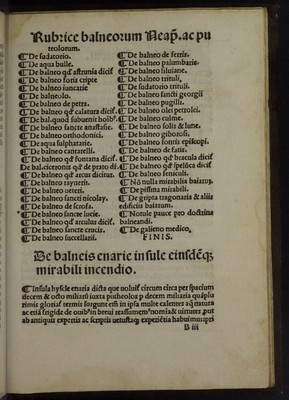 Rubrice balneorum Neap̄. ac pu
teolorum.
¶ De sudatorio.
¶ De aqua bulle.
¶ De balneo qd̓ astrunis dicit̄
¶ De balneo foris cripte
¶ De balneo iuncarie
¶ De balneolo.
¶ De balneo de petra.
¶ De balneo qd̓ calatura dicit̄.
¶ De bal. quod subuenit hoib̓.
¶ De balneo sancte anastasie.
¶ De balneo orthodonici.
¶ De aqua sulphataria.
¶ De balneo cantarelli.
¶ De balneo qd̓ fontana dicit̄.
¶ De balneo qd̓ arcus dicitur.
¶ De balneo raynerii.
¶ De balneo veteri.
¶ De balneo sancti nicolay.
¶ De balneo de scrofa.
¶ De balneo sancte lucie.
¶ De balneo qd̓ arculus dicit̄.
¶ De balneo sancte crucis.
¶ De balneo succellarii.
¶ De balneo de ferris.
¶ De balneo palumbarie.
¶ De balneo siluiane.
¶ De balneo trituli.
¶ De sudatorio trituli.
¶ De balneo sancti georgii
¶ De balneo pugilli.
¶ De balneo olei petrolei.
¶ De balneo culme.
¶ De balneo solis & lune.
¶ De balneo gibborosi.
¶ De balneo fontis episcopi.
¶ De balneo de fatis.
¶ De balneo qd̓ bracula dicit̄
¶ De balneo qd̓ spelūca dicit̄
¶ De balneo feniculi.
¶ Nō nulla mirabilia baiarum.
¶ De piscina mirabili.
¶ De gripta tragonaria & aliis
edificiis baiarum.
¶ Notule pauce pro doctrina
balneandi.
¶ De galieno medico.
FINIS.
De balneis enarie insule eiusdēq;
mirabili incendio.
¶ Insula hyscle enaria dicta que
circum circa per spacium
decem & octo miliarii iuxta putheolos
decem miliaria
ab antiquis expertis ac scriptis
B iii